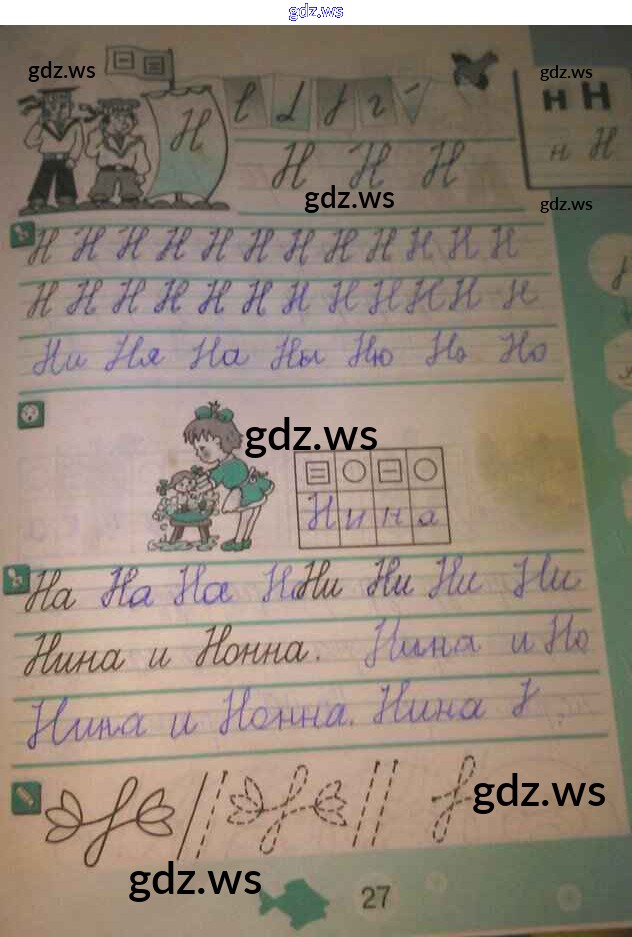 gdz.ws
gdz.ws
gdz.ws
н Н
Н
н Н
Н Н Н
gdz.ws
gdz.ws
Н Н Н Н Н Н Н Н Н Н Н Н
Н Н Н Н Н Н Н Н Н Н Н Н
Ни Ня На Ны Ню Но Но
gdz.ws
Нина
На На На Н Ни Ни Ни Ни
Нина и Нонна. Нина и Но
Нина и Нонна. Нина
gdz.ws
gdz.ws
27